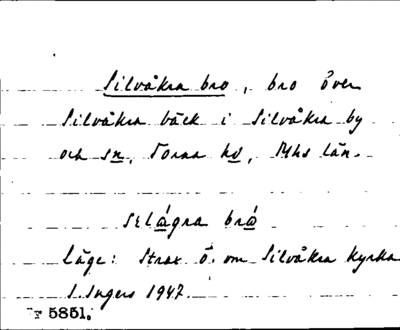 Silvåkra bro, bro över
Silvåkra bäck i Silvåkra by
och sn, Torna hd, Mhs län.
selágra brá
Läge: Strax Ö. om Silvåkra kyrka
I. Ingers 1947.
F 5851.